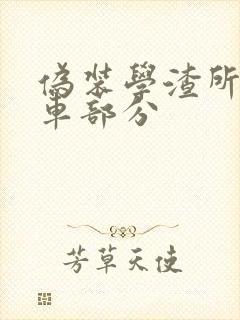 偽裝學渣所
車部分
芳草天使